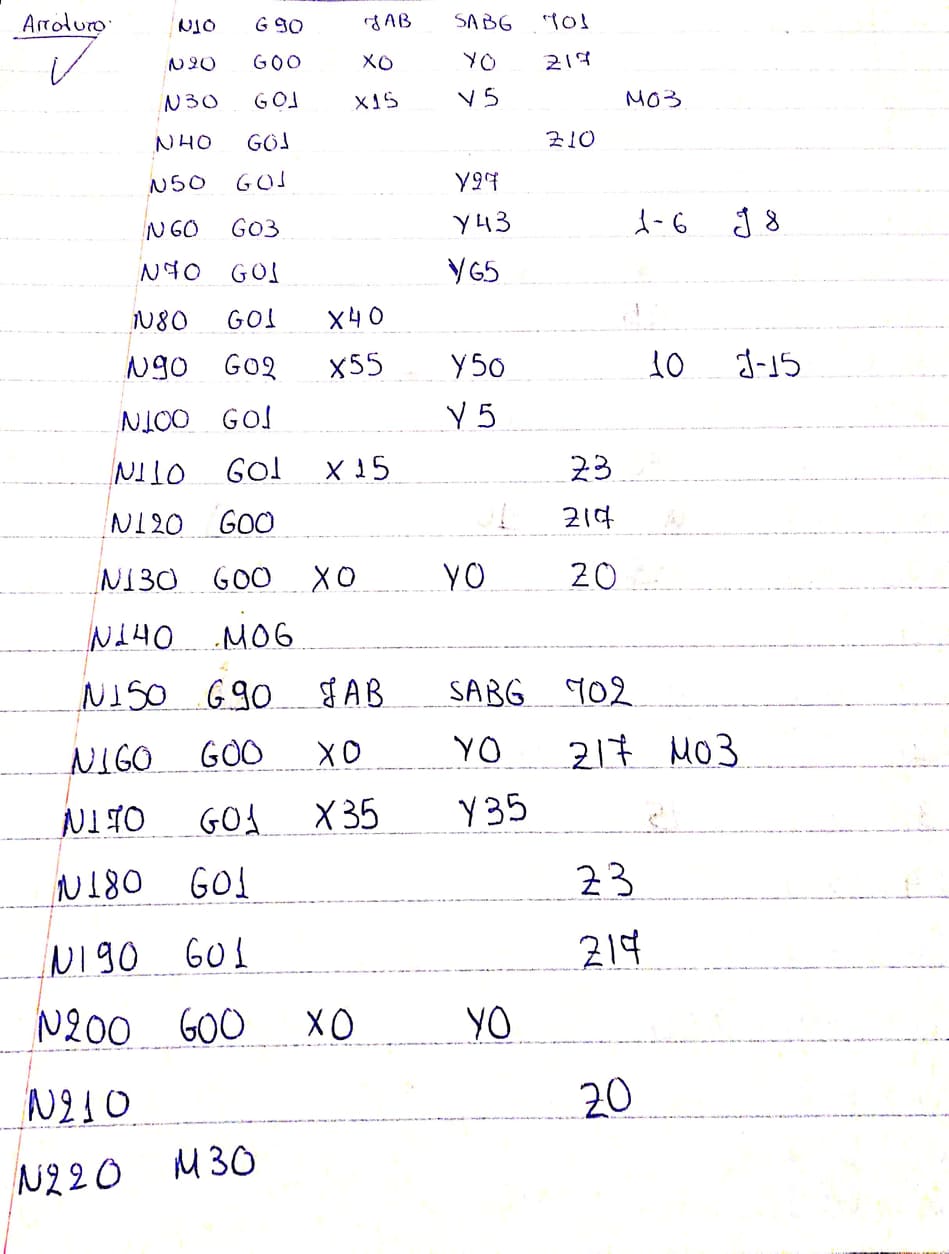 Απόλυτο: N10 G90 FAB SABG T01
N20 G00 X0 Y0 Z17
N30 G01 X15 Y5 M03
N40 G01 Z10
N50 G01 Y27
N60 G03 Y43 I-6 J8
N70 G01 Y65
N80 G01 X40
N90 G02 X55 Y50 I0 J-15
N100 G01 Y5
N110 G01 X15 Z3
N120 G00 Z17
N130 G00 X0 Y0 Z0
N140 M06
N150 G90 FAB SABG T02
N160 G00 X0 Y0 Z17 M03
N170 G01 X35 Y35
N180 G01 Z3
N190 G01 Z17
N200 G00 X0 Y0
N210 Z0
N220 M30